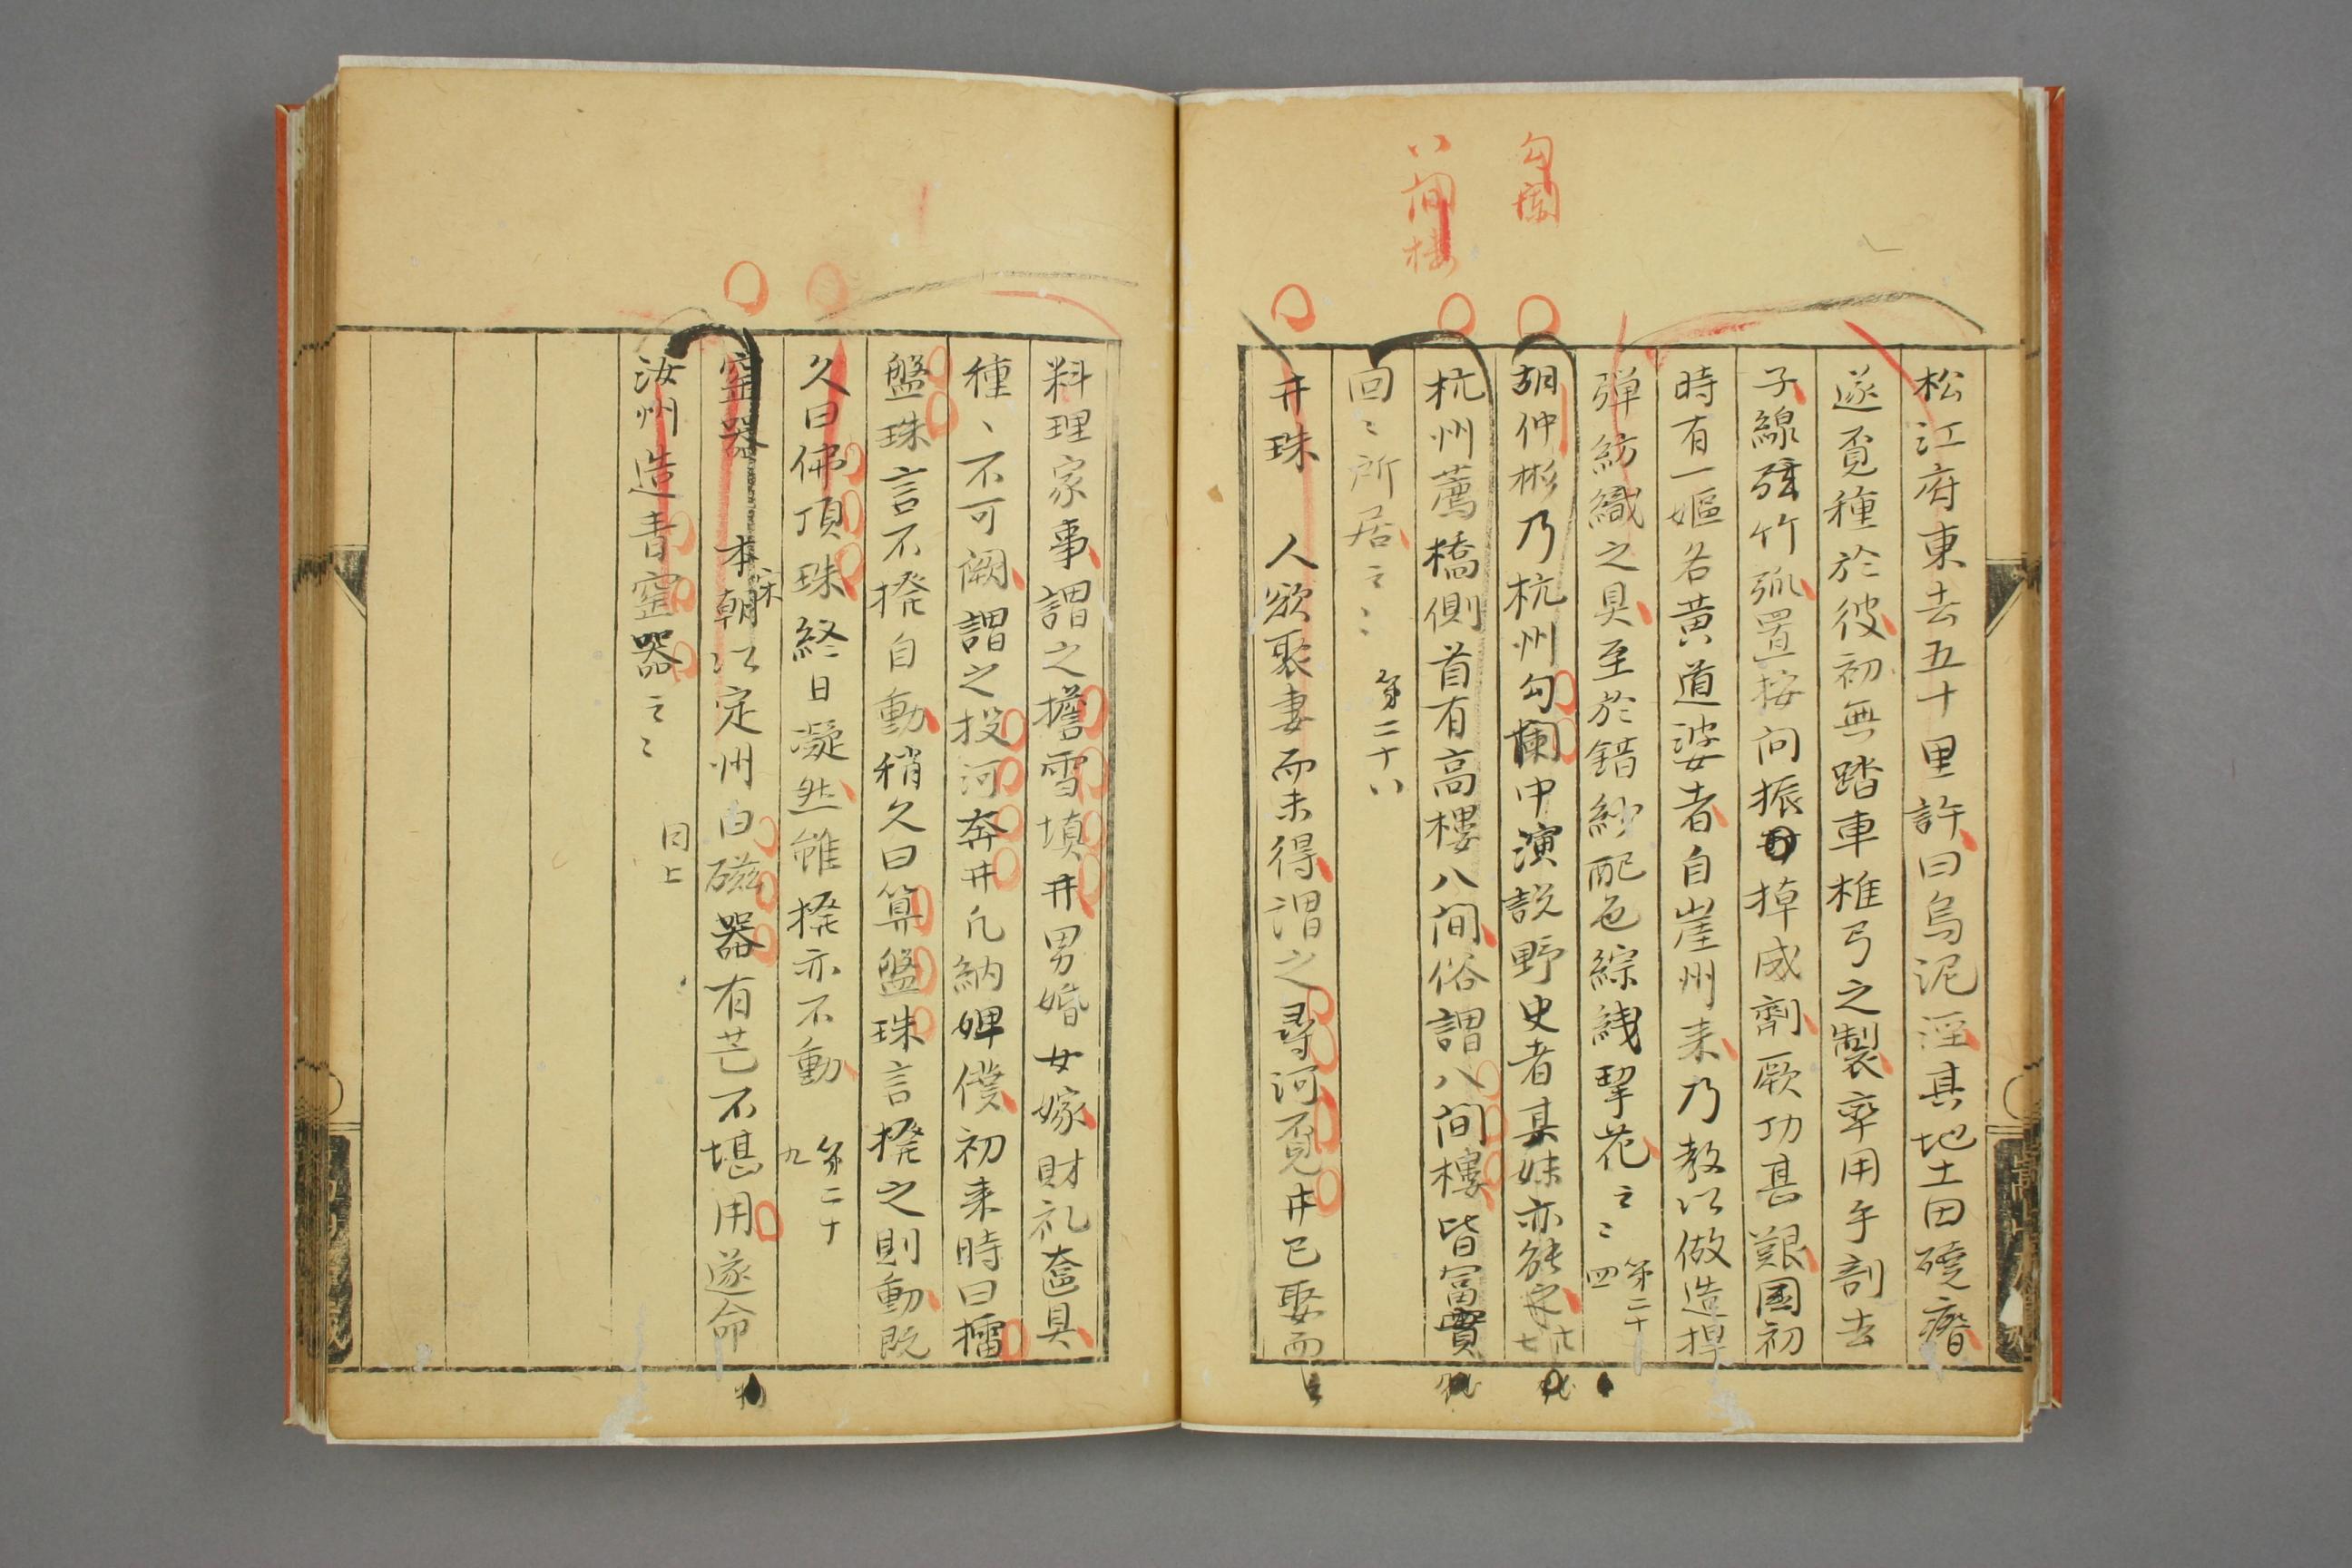 勾闌
八间楼
松江府東去五十里許曰烏泥涇其地土田磽瘠
遂覓種於彼初無踏車椎弓之製率用手剖去
子線弦竹弧置按间振掉成劑厥功甚艱国初
時有一嫗名黄道婆者自崖州来乃教以做造捍
弾紡織之具至於錯紗配色綜綫挈花云〻 第二十四
胡仲彬乃杭州勾欄中演説野史者其妹亦能之 廿七
杭州薦橋側首有高樓八间俗謂八间樓皆富實
回〻所居云〻 第二十八
井珠 人欲娶妻而未得謂之尋河覓井已娶而
料理家事謂之擔雪填井男婚女嫁財礼奩具
種〻不可阙謂之投河奔井凢納婢僕初来時曰擂
盤珠言不撥自動稍久曰算盤珠言撥之則動既
久曰佛頂珠終日凝然雖撥亦不動 第二十九
窑器 本朝以定州白磁器有芒不堪用遂命
宋
汝州造青窑器云〻 同上